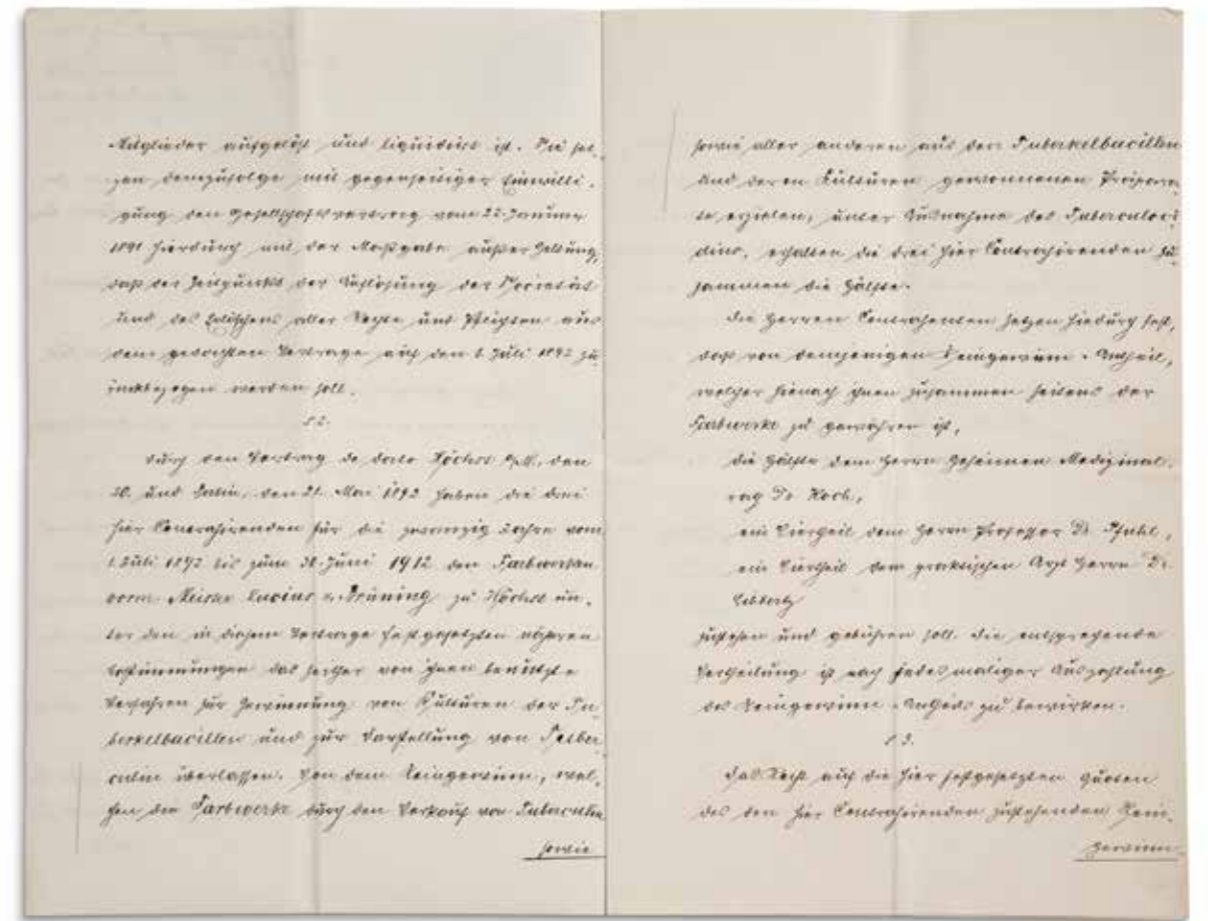 Mitglieder aufgelöst und liquidirt ist. Sie set-
zen demzufolge mit gegenseitiger Einwilli-
gung den Gesellschaftsvertrag vom 22. Januar
1891 hierdurch mit der Maßgabe außer Geltung,
daß der Zeitpunkt der Auflösung der Societät
und des Erlöschens aller Rechte und Pflichten aus
dem gedachten Vertrage auf den 1. Juli 1892 zu-
rückbezogen werden soll.
§ 2.
Durch den Vertrag de dato Höchst a/M., den
20. und Berlin, den 21. Mai 1892 haben die drei
hier Contrahirenden für die zwanzig Jahre vom
1. Juli 1892 bis zum 30. Juni 1912 den Farbwerken
vorm. Meister Lucius & Brüning zu Höchst un-
ter den in diesem Vertrage festgesetzten näheren
Bestimmungen das seither von ihnen benützte
Verfahren zur Gewinnung von Kulturen der Tu-
berkelbacillen und zur Darstellung von Tuber-
culin überlassen. Von dem Reingewinn, wel-
chen die Farbwerke durch den Verkauf von Tuberculin
sowie
sowie aller anderen aus den Tuberkelbacillen
und deren Kulturen gewonnenen Präpara-
te erzielen, unter Ausnahme des Tuberculoci-
dins, erhalten die drei hier Contrahirenden zu-
sammen die Hälfte.
Die Herren Contrahenten setzen hiedurch fest,
daß von demjenigen Reingewinn-Antheil,
welcher hienach ihnen zusammen seitens der
Farbwerke zu gewähren ist,
die Hälfte dem Herrn Geheimen Medizinal-
rath Dr. Koch,
ein Viertheil dem Herrn Professor Dr. Pfuhl,
ein Viertheil dem praktischen Arzt Herrn Dr.
Libbertz
zustehen und gebühren soll. Die entsprechende
Vertheilung ist nach jedesmaliger Auszahlung
des Reingewinn-Antheils zu bewirken.
§ 3.
Das Recht auf die hier festgesetzten Quoten
des den hier Contrahirenden zustehenden Rein-
gewinn-